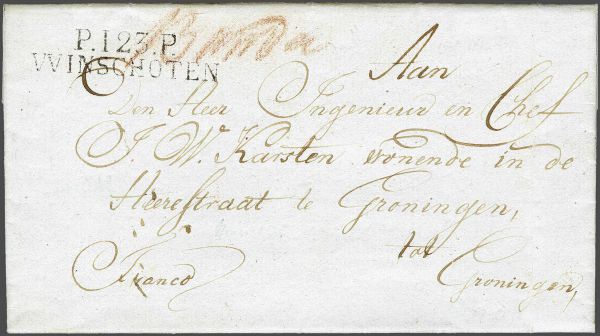 P.123.P.
WINSCHOTEN
Aan
Den Heer Ingenieur en Chef
J. Wr. Karsten wonende in de
Heerestraat te Groningen,
tot
Franco Groningen,